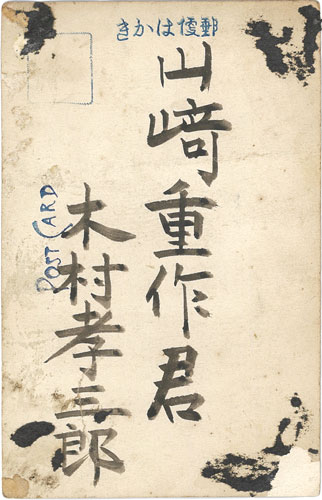 きかは便郵
山﨑重作君
木村孝三郎
POST CARD